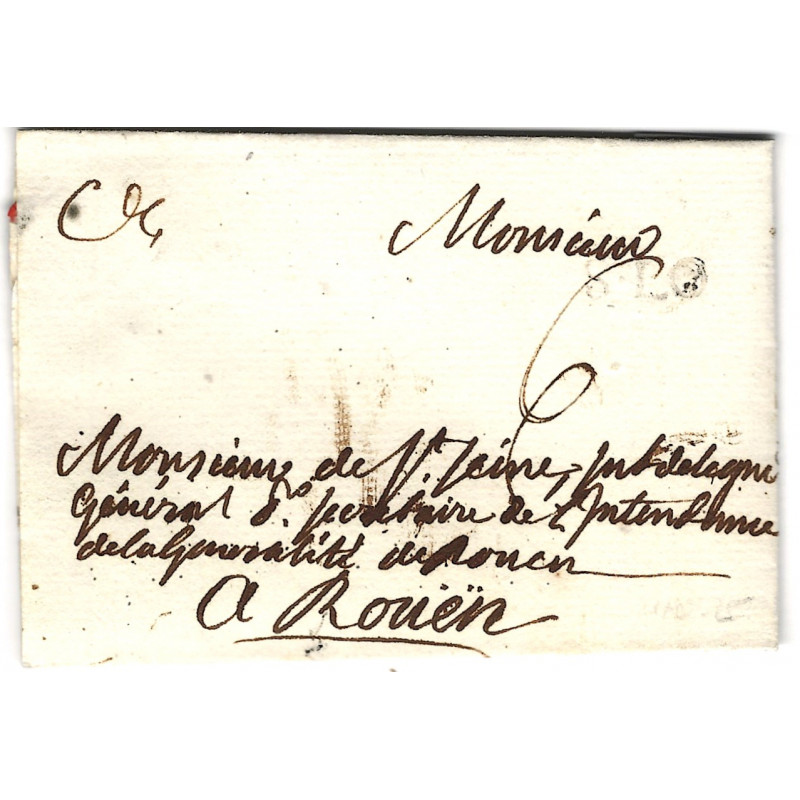 Monsieur
S. LO
6
Monsieur de St Seine, Subdelegué
Général & Secretaire de l'Intendance
de la Generalité de Rouen
A Rouën